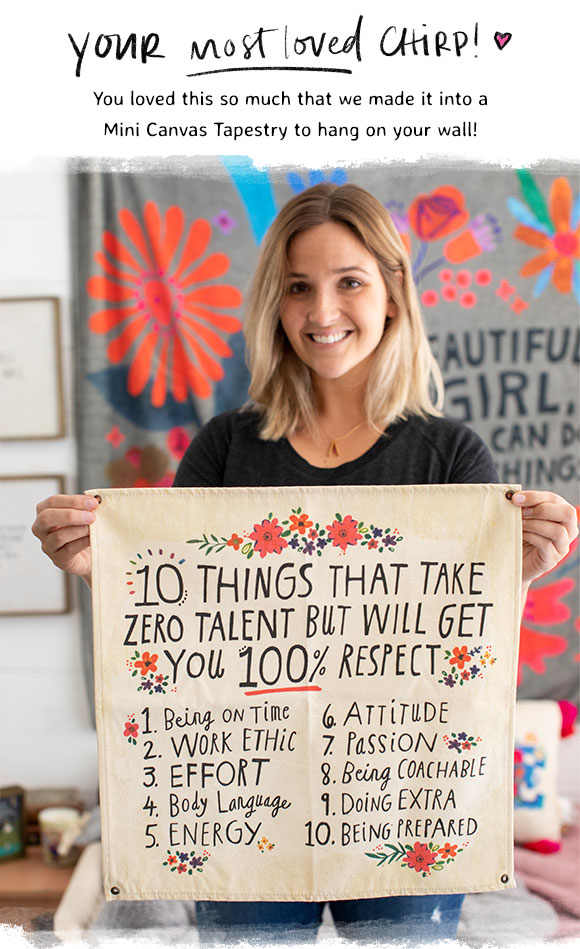 YOUR most loved CHIRP!
You loved this so much that we made it into a
Mini Canvas Tapestry to hang on your wall!
BEAUTIFUL
GIRL,
CAN DO
THINGS
10 THINGS THAT TAKE
ZERO TALENT BUT WILL GET
YOU 100% RESPECT
1. Being ON Time
2. WORK ETHiC
3. EFFORT
4. Body Language
5. ENERGY
6. ATTITUDE
7. PASSiON
8. Being COACHABLE
9. DOiNG EXTRA
10. BEiNG PREPARED